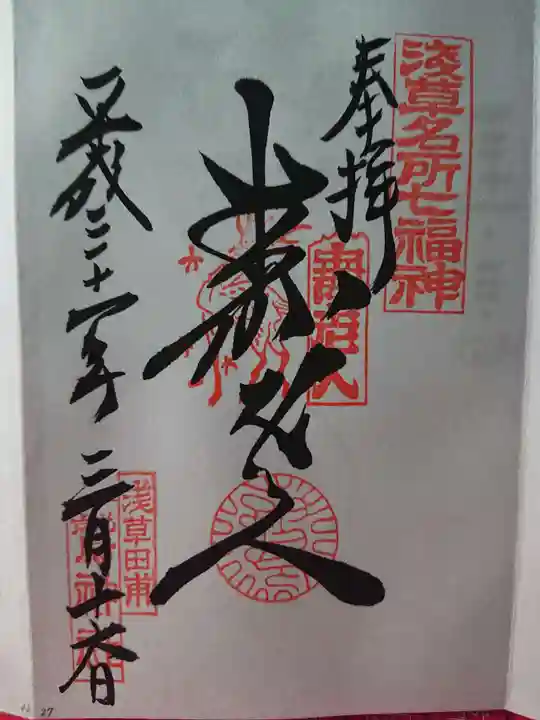 浅草名所七福神
奉拝
壽老人
壽老人
浅草田甫
鷲神社
平成二十一年 三月
27